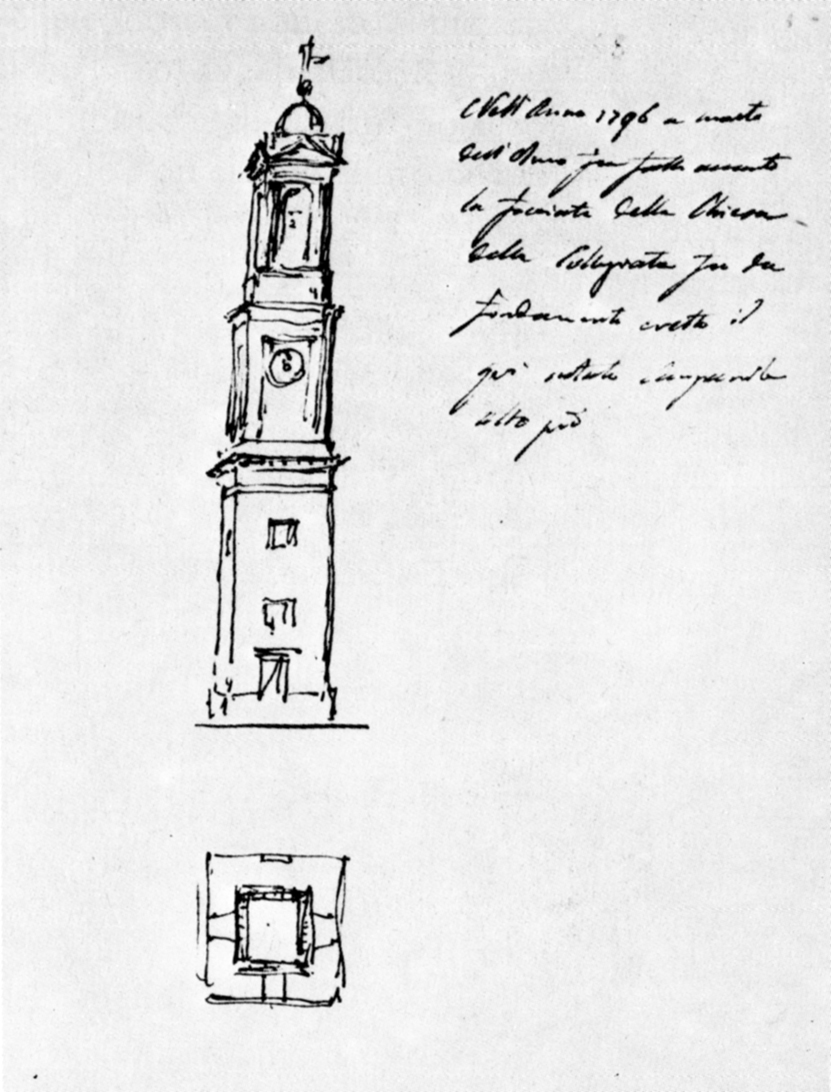 Nell' Anno 1796 a
dell' Anno fu fatto accanto
la facciata della Chiesa
della Collegiata fu da
fondamenti eretto il
qui notato Campanile
alto piè